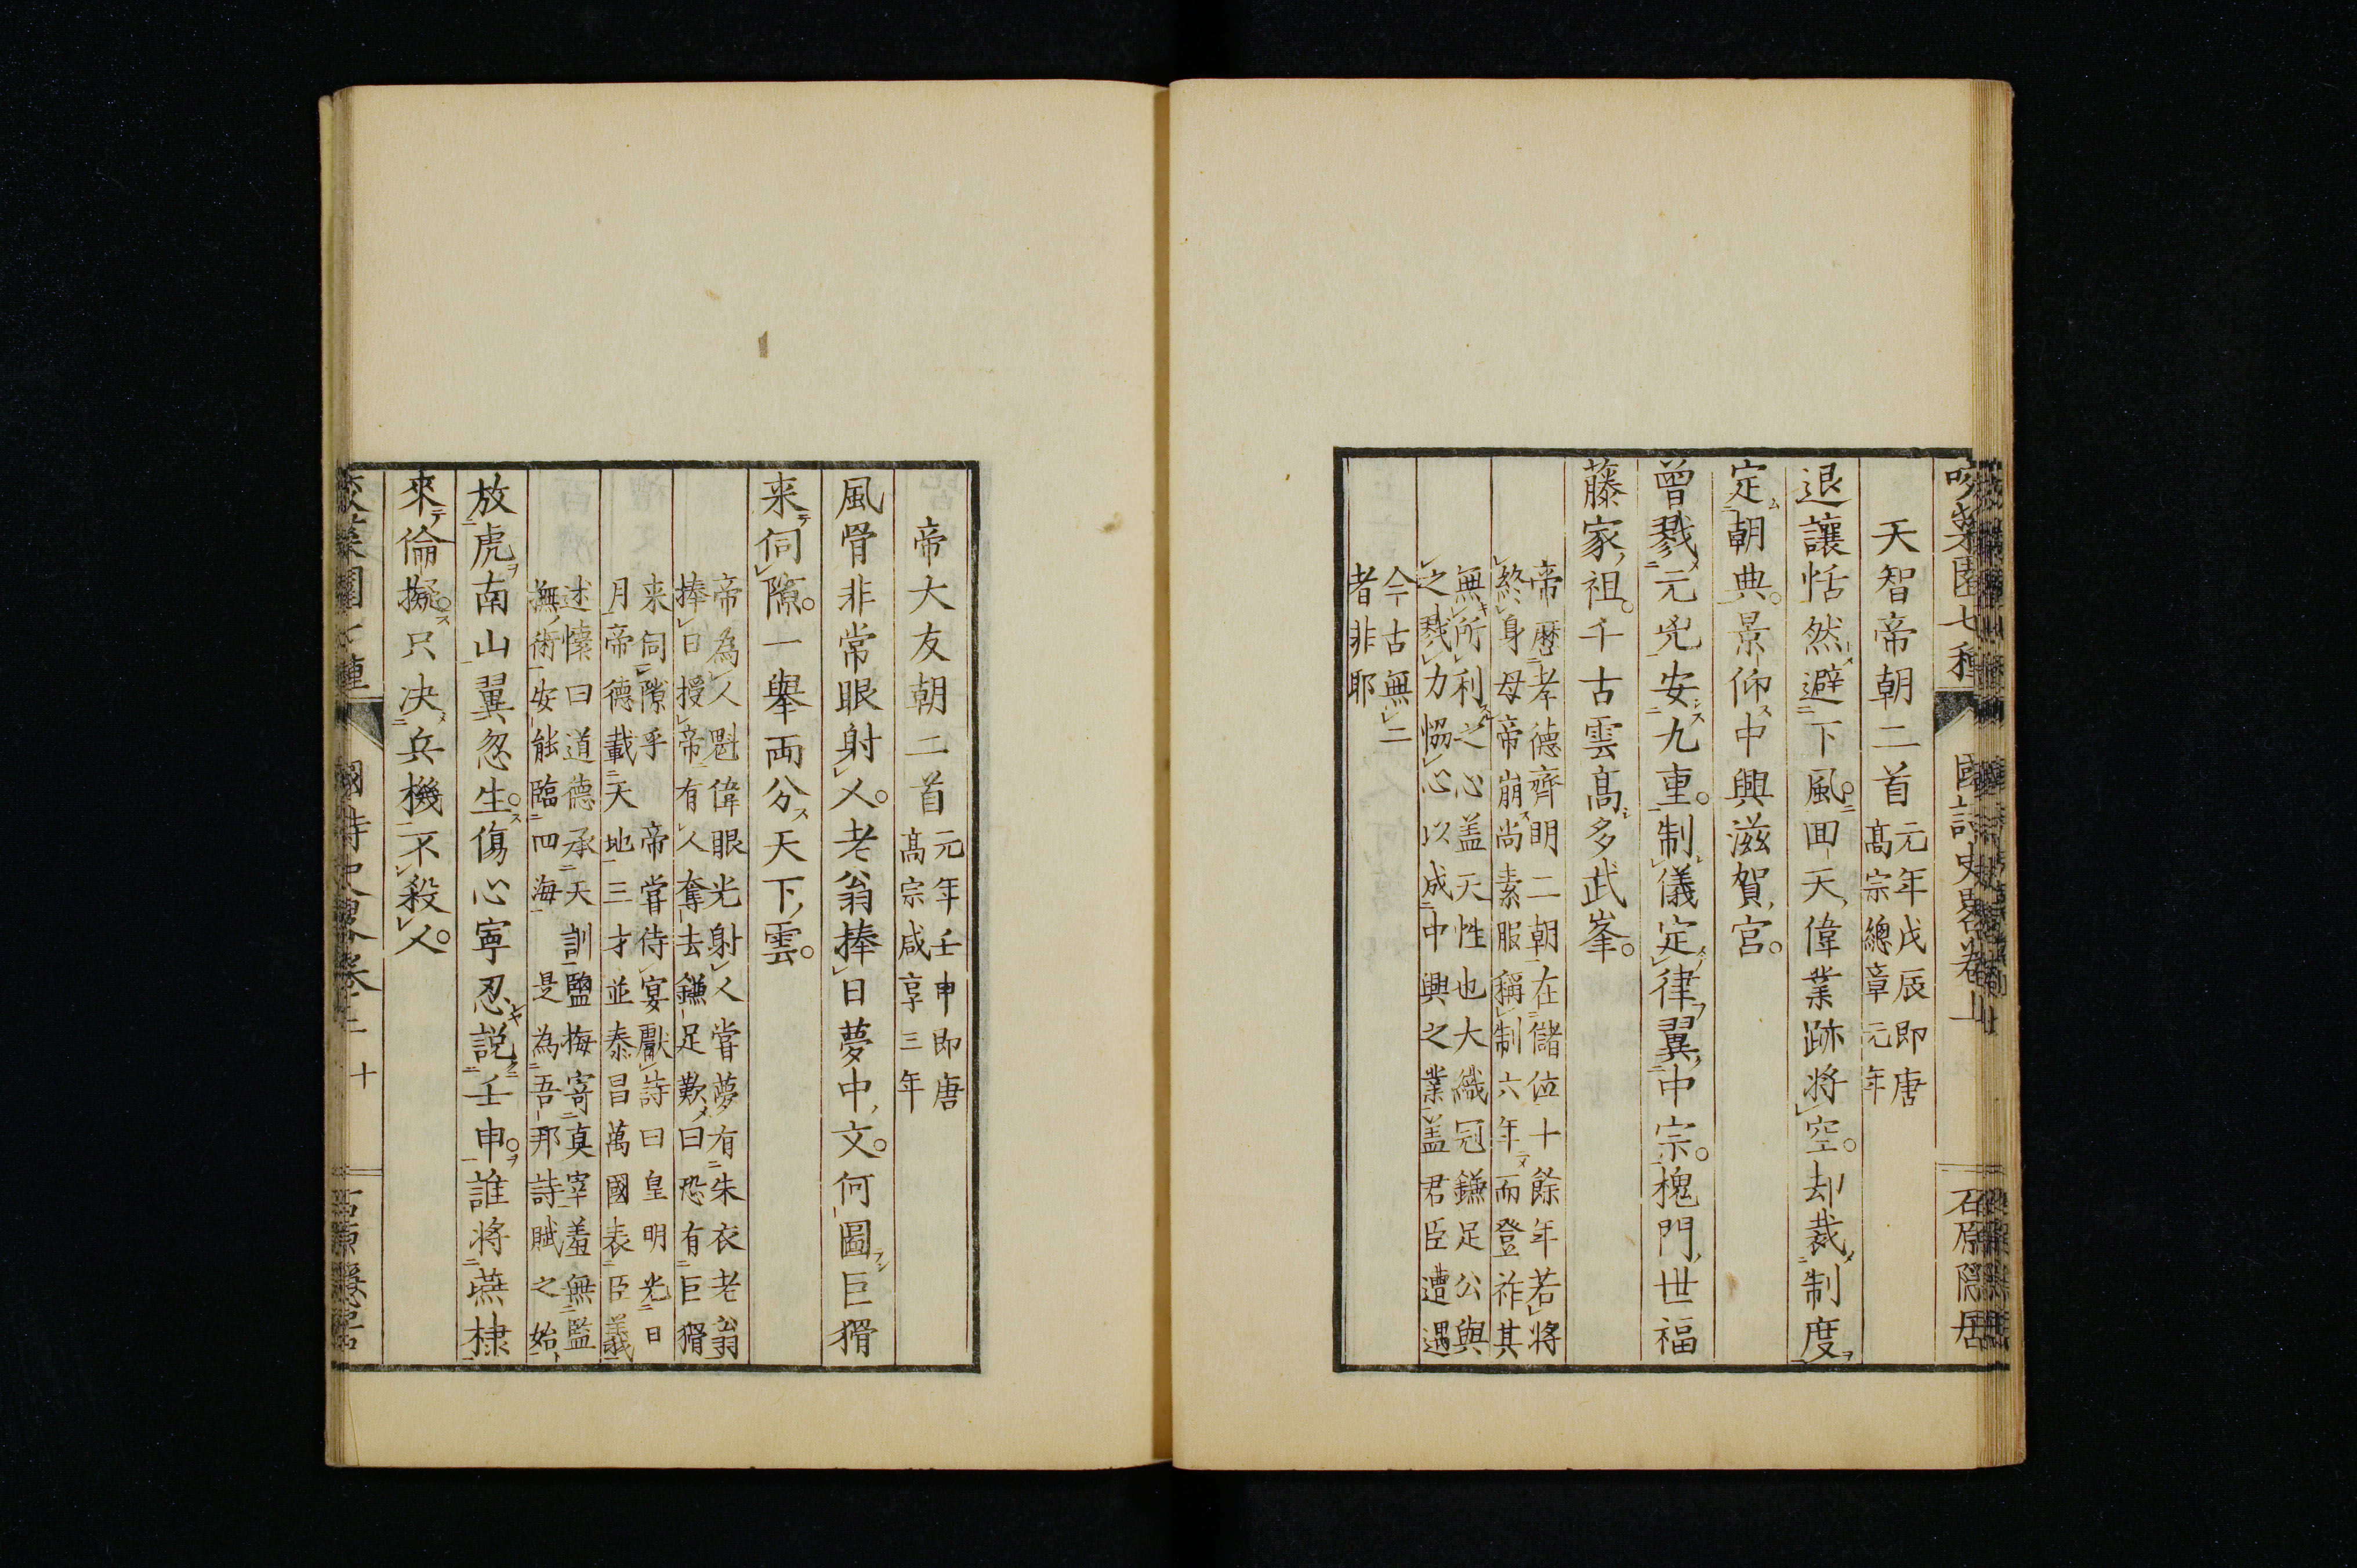 咬菜園七種　國詩史畧卷上　石原隱居
天智帝朝二首 元年戊辰即唐
高宗總章元年
退讓恬然避下風○回天偉業跡將空○却裁制度
定朝典○景仰中興滋賀宮○
曾戮元兇安九重○制儀定律翼中宗○槐門世福
藤家祖○千古雲高多武峯○
帝曆孝德齊明二朝在儲位十餘年若將
終身母帝崩尚素服稱制六年而登祚其
無所利之心盖天性也大織冠鎌足公與
之戮力恊心以成中興之業盖君臣遭遇
今古無二
者非耶
帝大友朝二首 元年壬申即唐
高宗咸享三年
風骨非常眼射人○老翁捧日夢中文○何圖巨猾
来伺隙○一擧両分天下雲○
帝為人魁偉眼光射人嘗夢有朱衣老翁
捧日授帝有人奪去鎌足歎曰恐有巨猾
来伺隙乎　帝嘗侍宴獻詩曰皇明光日
月帝德載天地三才並泰昌萬國表臣義
述懐曰道德承天訓鹽梅寄真宰羞無監
撫術安能臨四海　是為吾邦詩賦之始
放虎南山翼忽生○傷心寧忍説壬申○誰將燕棣
來倫擬○只决兵機不殺人○
十